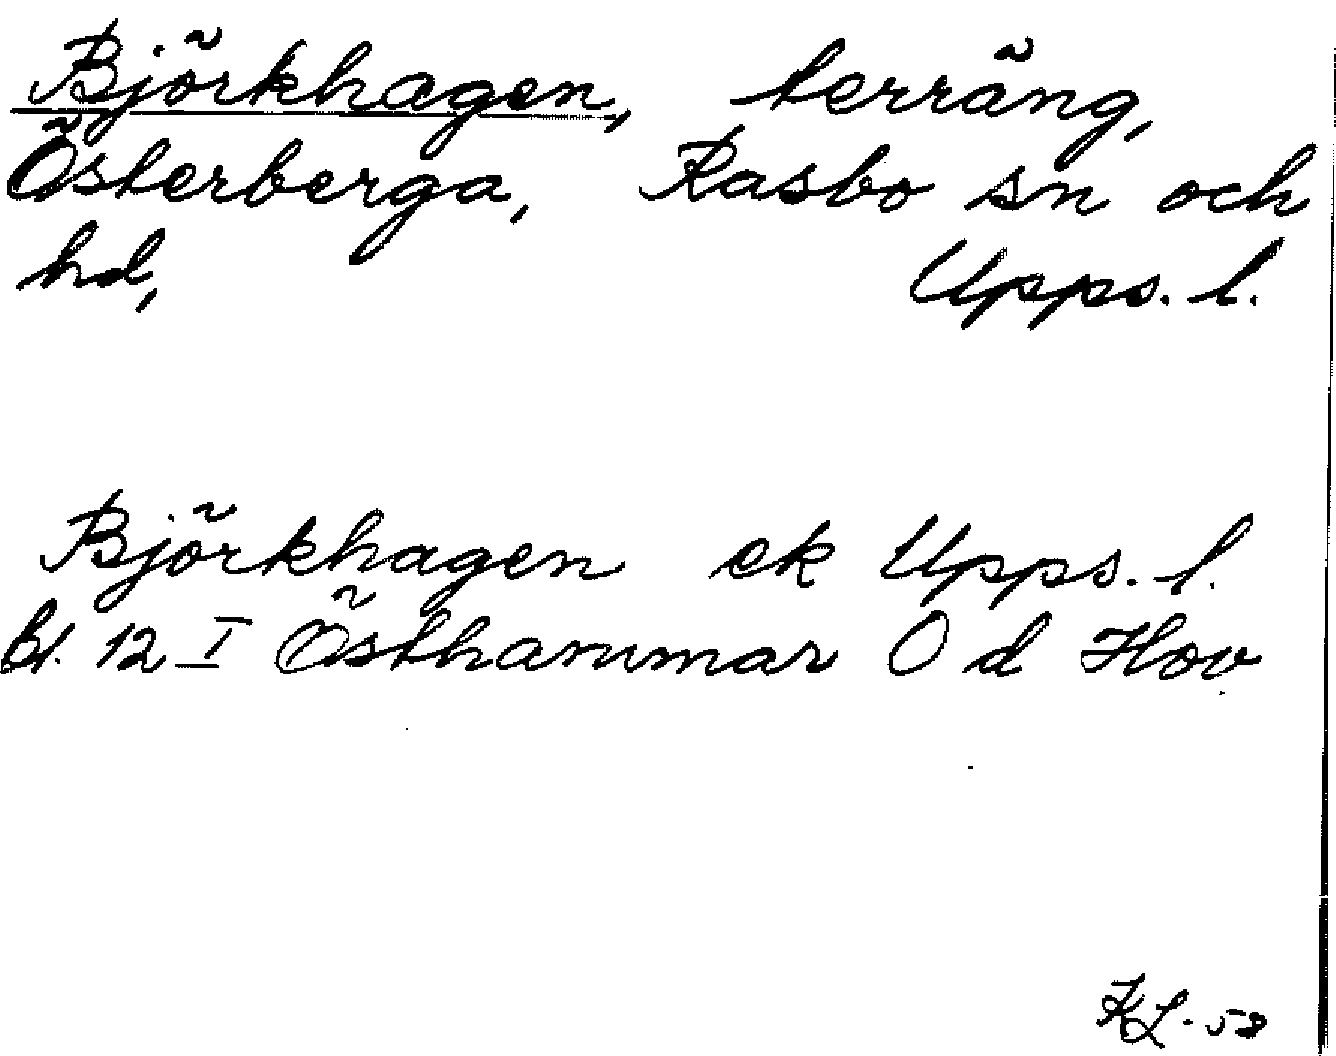 Björkhagen, terräng,
Österberga, Rasbo sn och
hd, Upps. l.
Björkhagen ek Upps. l.
bl. 12 I Östhammar O d Hov
KL-58